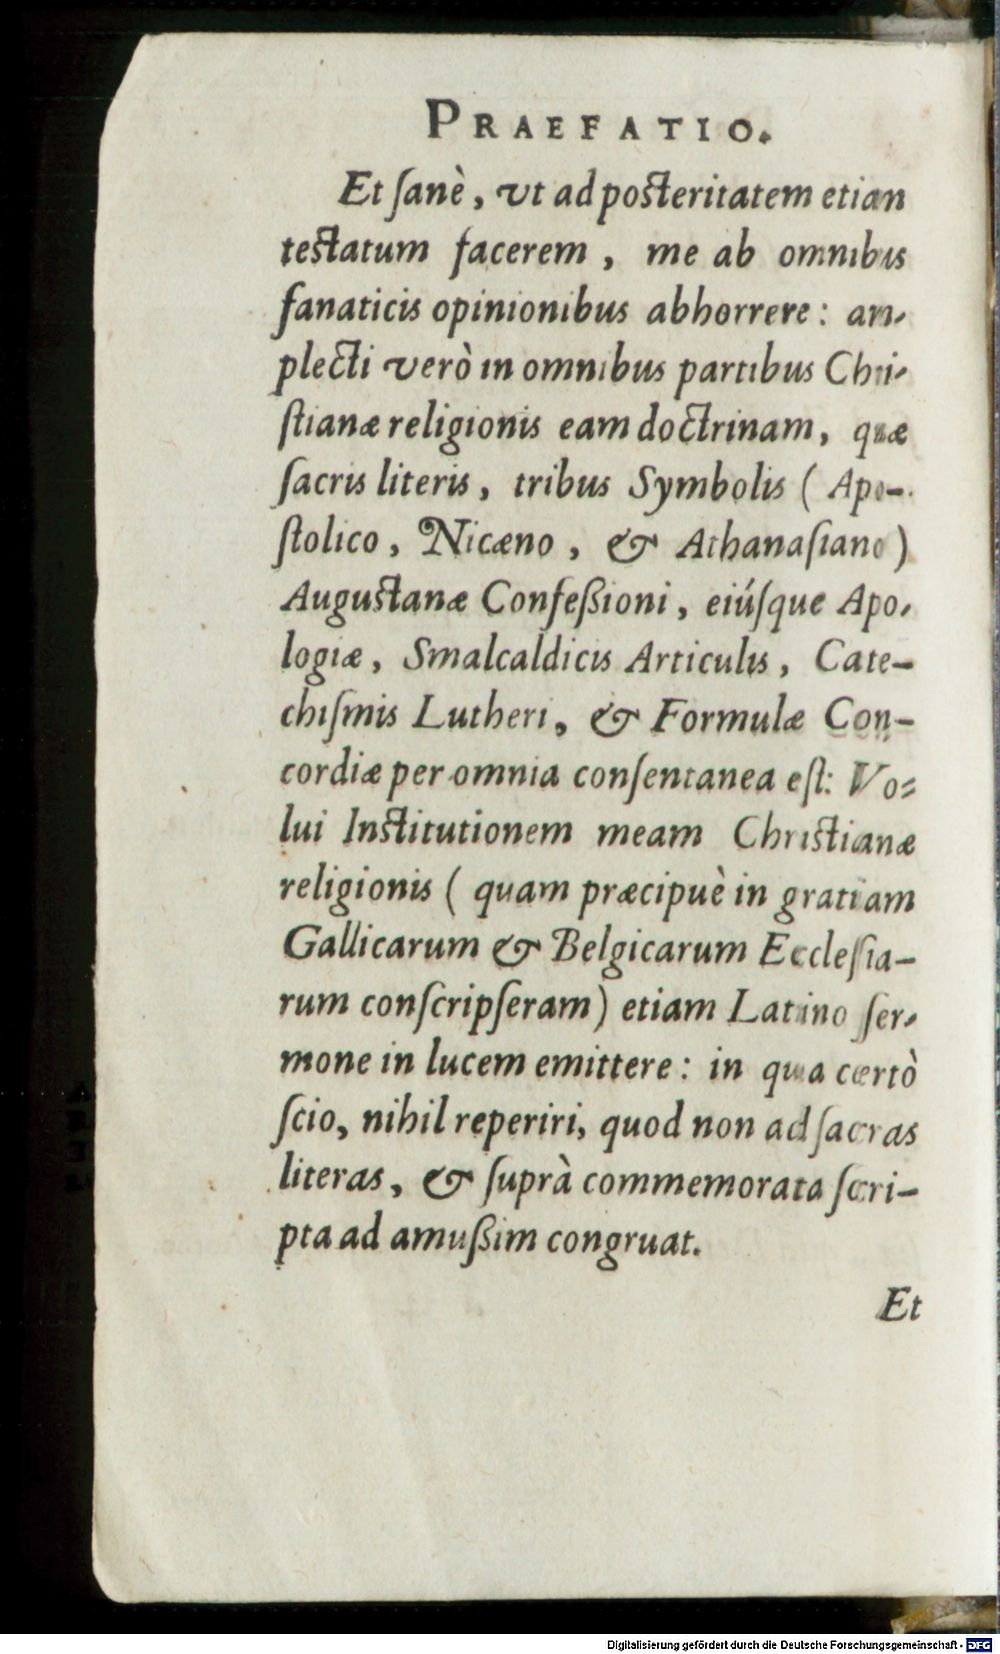 PRAEFATIO.
Et ſanè, vt ad poſteritatem etian
teſtatum facerem, me ab omnibus
fanaticis opinionibus abhorrere: am-
plecti verò in omnibus partibus Chri-
ſtianæ religionis eam doctrinam, quæ
ſacris literis, tribus Symbolis (Apo-
ſtolico, Nicæno, & Athanaſiano)
Auguſtanæ Confeßioni, eiúſque Apo-
logiæ, Smalcaldicis Articulis, Cate-
chiſmis Lutheri, & Formulæ Con-
cordiæ per omnia conſentanea eſt: Vo-
lui Inſtitutionem meam Chriſtianæ
religionis (quam præcipuè in gratiam
Gallicarum & Belgicarum Eccleſia-
rum conſcripſeram) etiam Latino ſer-
mone in lucem emittere: in qua certò
ſcio, nihil reperiri, quod non ad ſacras
literas, & ſuprà commemorata ſcri-
pta ad amußim congruat.
Et
Digitalisierung gefördert durch die Deutsche Forschungsgemeinschaft - DFG